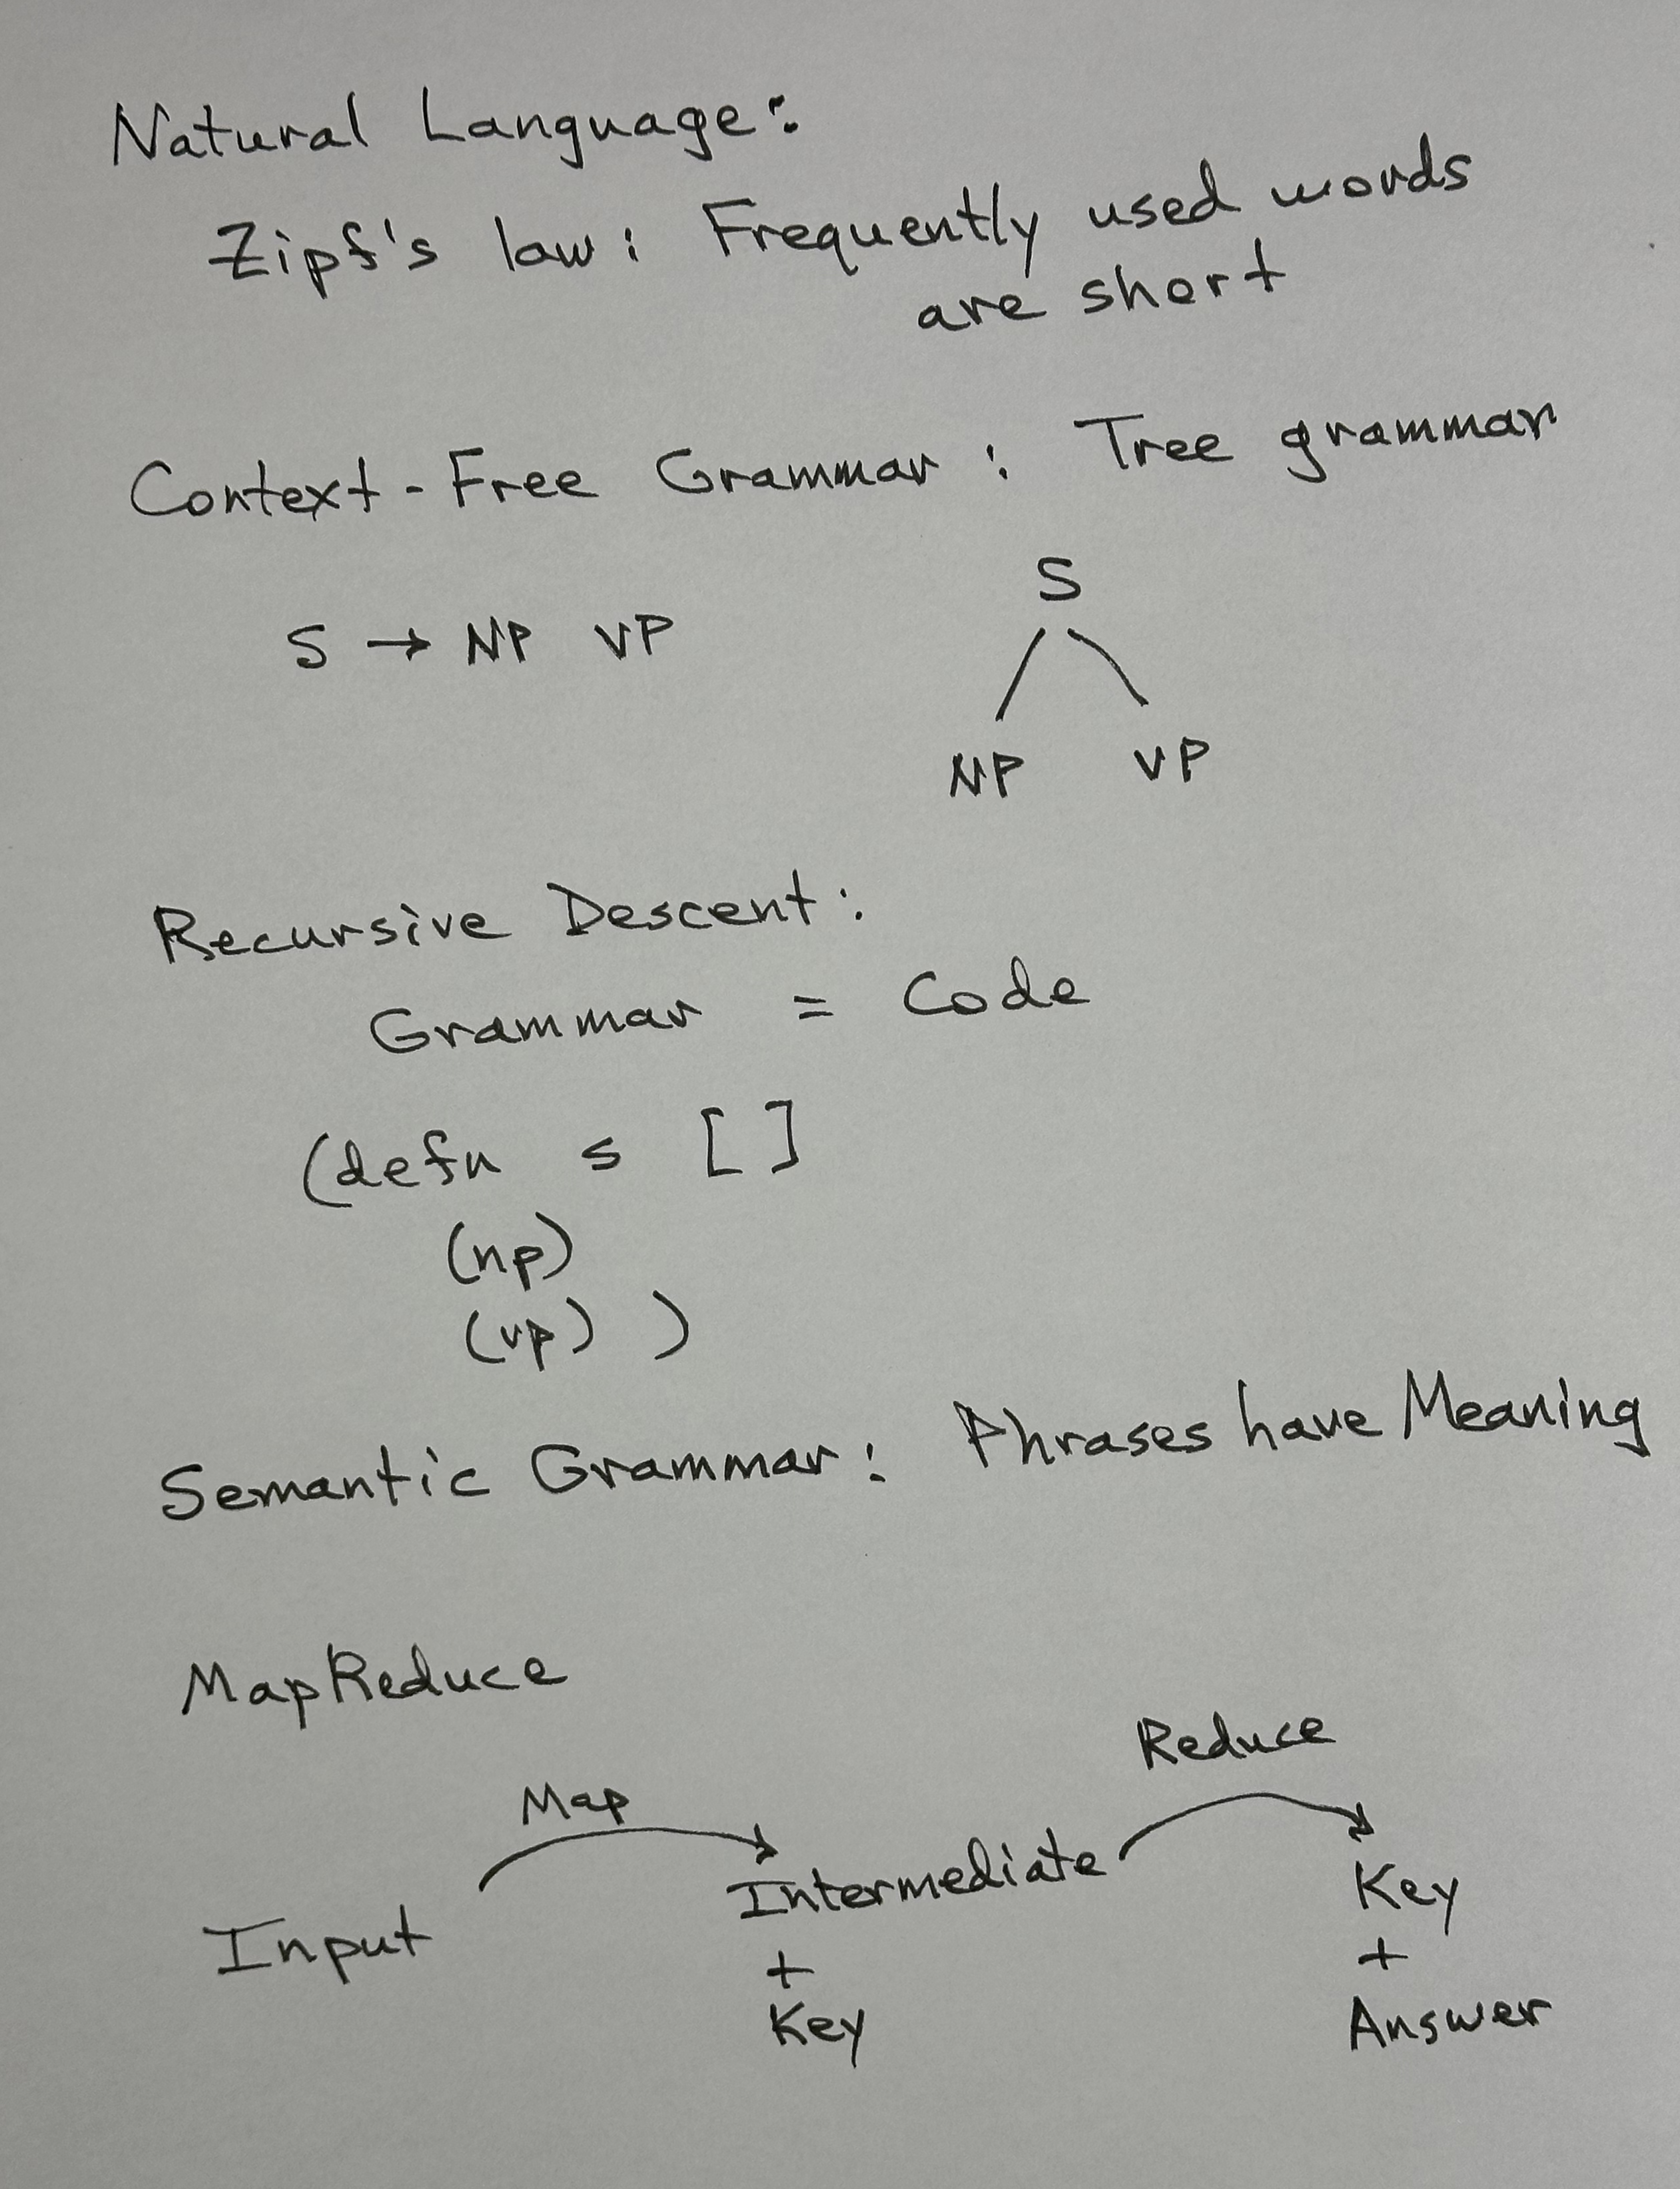 Natural Language:
Zipf's law: Frequently used words
are short
Context-Free Grammar: Tree grammar
S → NP VP
S
NP VP
Recursive Descent:
Grammar = Code
(defn s []
(np)
(vp) )
Semantic Grammar: Phrases have Meaning
MapReduce
Map
Reduce
Input
Intermediate
+
Key
Key
+
Answer